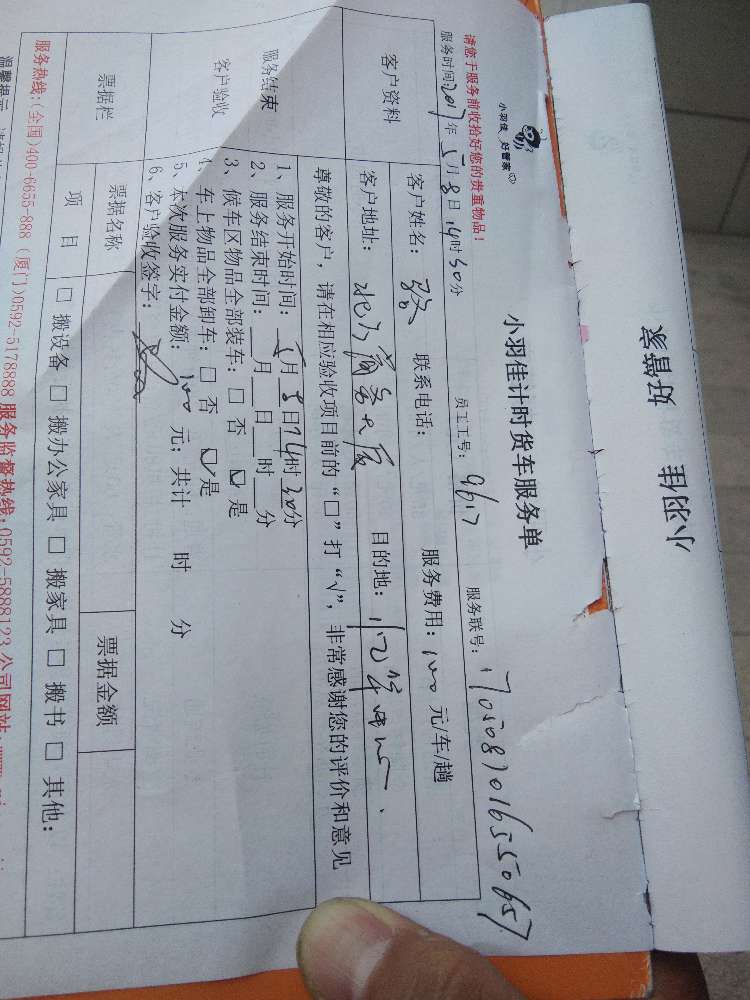 小羽佳 好管家
小羽佳 好管家
小羽佳计时货车服务单
请您于服务前收拾好您的贵重物品!
服务时间2017年5月8日14时30分 员工工号: 9617 服务联号: 1705087016550657
客户资料
客户姓名: 联系电话: 服务费用: 100元/车/趟
客户地址: 商务大厦 目的地:
服务结束
客户验收
尊敬的客户, 请在相应验收项目前的“□”打“√”, 非常感谢您的评价和意见
1、服务开始时间: 5月8日14时30分
2、服务结束时间: 月 日 时 分
3、候车区物品全部装车: □ 否 ☑ 是
4、车上物品全部卸车: □ 否 ☑ 是
5、本次服务实付金额: 100 元; 共计 时 分
6、客户验收签字:
票据栏
票据名称 票据金额
项 目 □ 搬设备 □ 搬办公家具 □ 搬家具 □ 搬书 □ 其他:
服务热线:(全国)400-6655-888 (厦门)0592-5178888 服务监督热线:0592-5888123 公司网站:
温馨提示